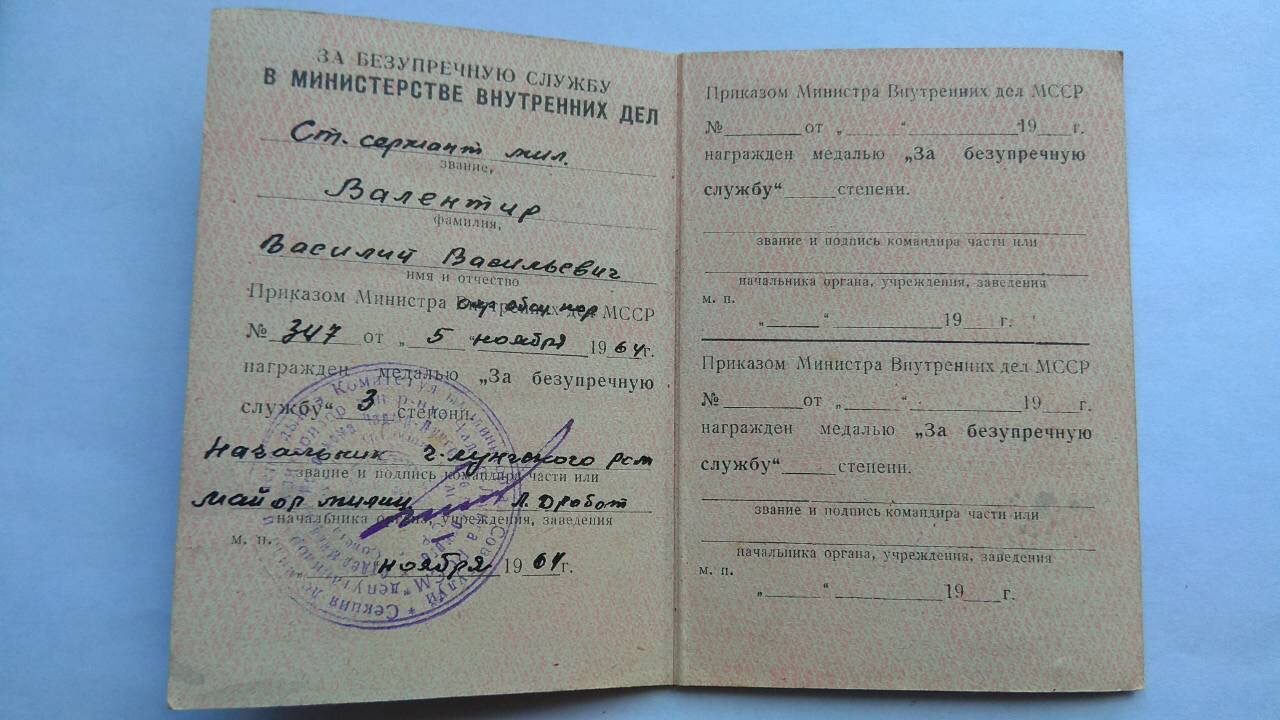 ЗА БЕЗУПРЕЧНУЮ СЛУЖБУ
В МИНИСТЕРСТВЕ ВНУТРЕННИХ ДЕЛ
Ст. сержант мил.
звание,
Валентир
фамилия,
Василий Васильевич
имя и отчество
Приказом Министра Внутренних дел МССР
охр общ пор
№ 347 от „ 5 “ ноября 1964г.
награжден медалью „За безупречную
службу“ 3 степени.
Начальник
звание и подпись командира части или
майор милиц Л. Дробот
начальника органа, учреждения, заведения
м. п.
ноября 1964г.
Приказом Министра Внутренних дел МССР
№ от „ “ 19 г.
награжден медалью „За безупречную
службу“ степени.
звание и подпись командира части или
начальника органа, учреждения, заведения
м. п.
„ “ 19 г.
Приказом Министра Внутренних дел МССР
№ от „ “ 19 г.
награжден медалью „За безупречную
службу“ степени.
звание и подпись командира части или
начальника органа, учреждения, заведения
м. п.
„ “ 19 г.